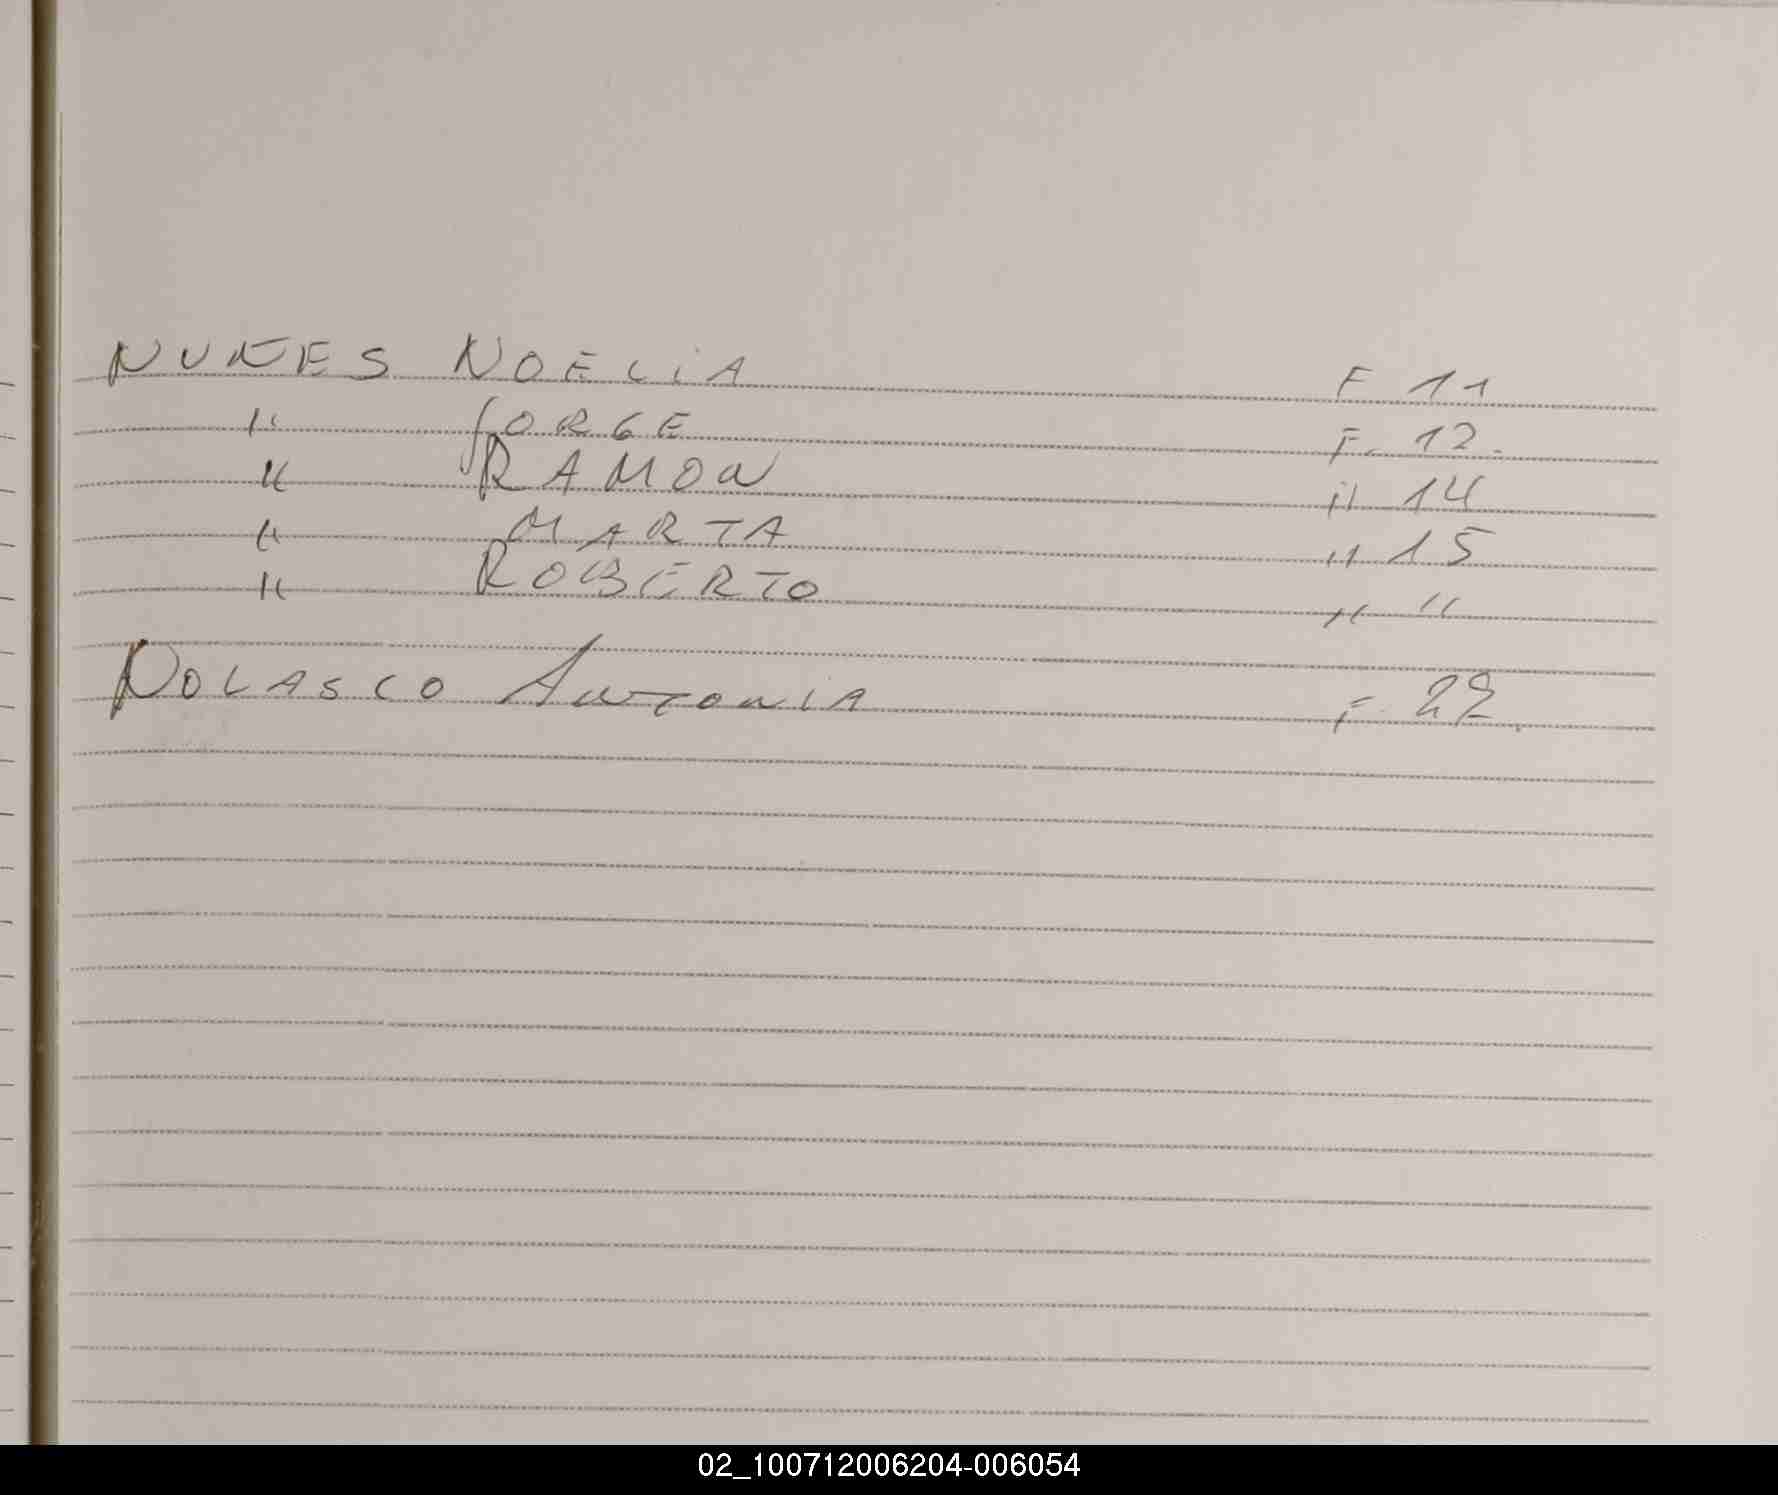 NUÑES NOELIA F 11
" JORGE F. 12.
" RAMON " 14
" MARTA " 15
" ROBERTO " "
NOLASCO ANTONIA F. 22.
02_100712006204-006054